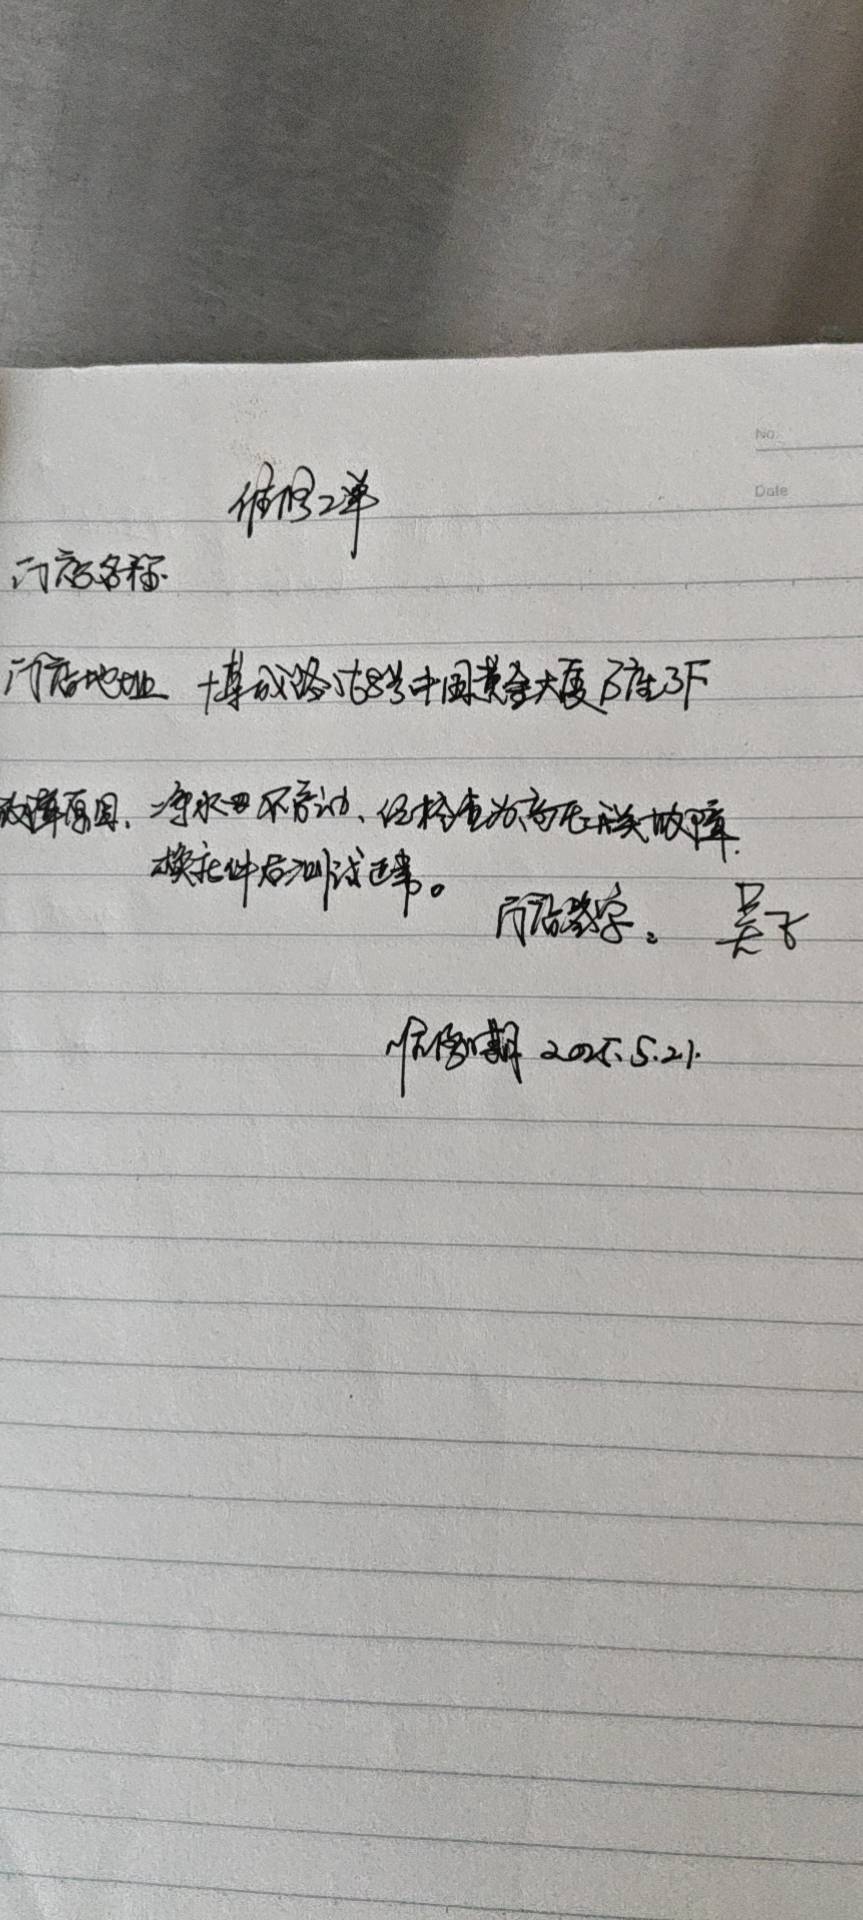 No.
Date
维修工单
门店名称
门店地址 博成路1568号中国黄金大厦B座3F
故障原因、净水器不启动、经检查为高压开关故障.
换配件后测试正常。
门店签字。 吴飞
维修日期 2025.5.21.